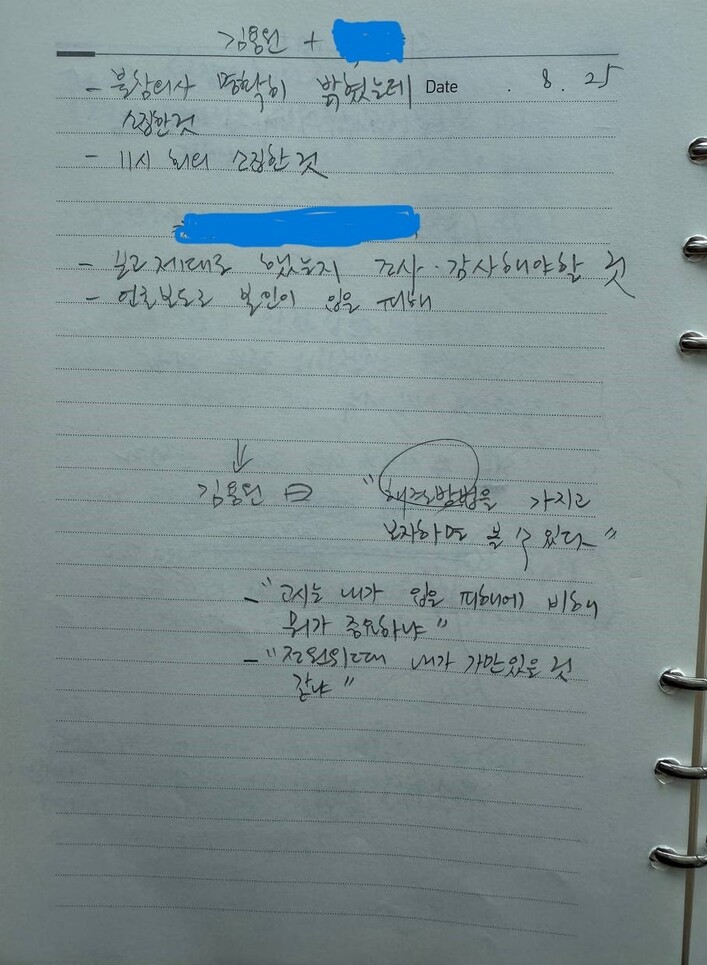 김용원 +
- 불참의사 명확히 밝혔는데 Date . 8 . 25
소집한것
- 11시 회의 소집한 것
- 보고 제대로 했는지 조사·감사해야할 것
- 언론보도로 본인이 입은 피해
김용원 曰 "해결방법을 가지고
보자하면 볼 수 있다"
- "고시는 내가 입은 피해에 비해
뭐가 중요하냐"
- "전원위때 내가 가만있을 것
같냐"